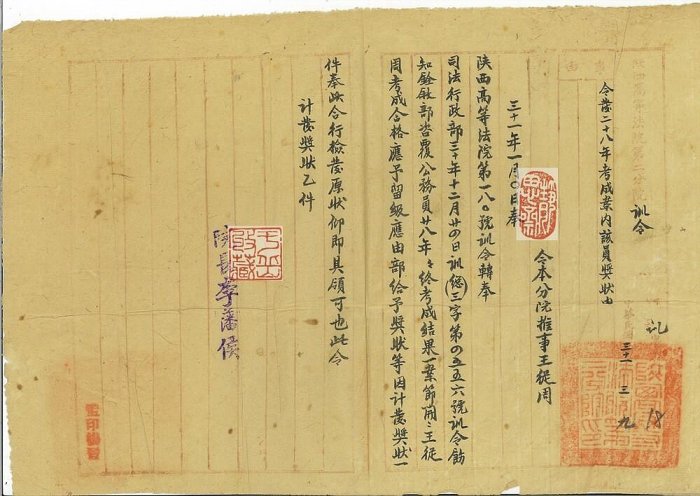 訓令
令發二十八年考成案内該員獎狀由
令本分院推事王從周
三十一年一月〇日奉
陝西高等法院第一八〇號訓令轉奉
司法行政部三十年十二月廿四日訓(總)三字第四五五六號訓令飭
知銓敘部咨覆公務員廿八年年終考成結果一案節開王從
周考成合格應予留級應由部給予獎狀等因計發獎狀一
件奉此合行檢發原狀仰即具領可也此令
計發獎狀乙件
院長李藩侯